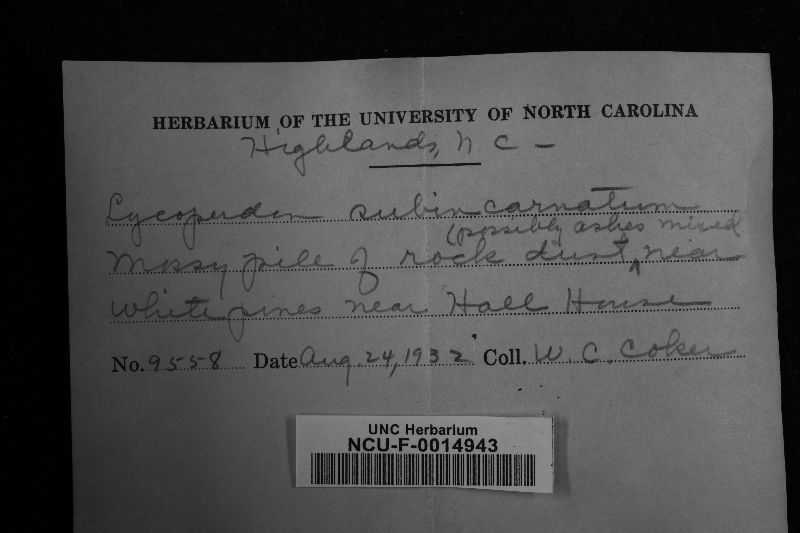 HERBARIUM OF THE UNIVERSITY OF NORTH CAROLINA
Highlands, N C –
Lycoperdon subincarnatum
(possibly ashes mixed
Mossy pile of rock dust ^ near
White pines near Hall House
No. 9558 Date Aug. 24, 1932 Coll. W. C. Coker
UNC Herbarium
NCU-F-0014943